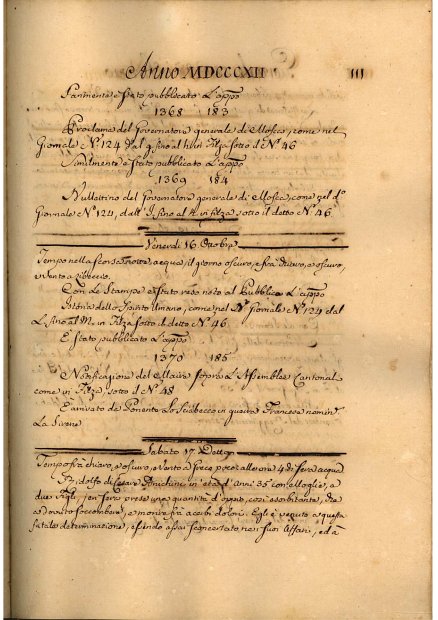 Anno MDCCCXII
III
Parimenti è stato pubblicato l'app.o
1368 183
Proclama del Governatore generale di Mosca, come nel
Giornale N.o 124 dal q. fino al h. in Filza sotto il d.o N.o 46
Similmente è stato pubblicato l'app.o
1369 184
Bullettino del Governatore generale di Mosca, come nel d.o
Giornale N.o 124, dall' I. fino al in Filza sotto il detto N.o 46.
Venerdi 16 Ottobre
Tempo nella scorsa notte, acqua, il giorno oscuro, e frà chiaro, e oscuro,
e vento a libeccio.
Con le Stampe è stato reso noto al Pubblico l'app.o
Istoria dello Spirito Umano, come nel N.o Giornale N.o 124 dal
L. fino al M. in Filza sotto il detto N.o 46
È stato pubblicato l'app.o
1370 185
Notificazione del Maire sopra l'Assemblea Cantonal
come in Filza sotto il N.o 48
È arrivato da Ponente lo Sciabecco in guerra Francese nomin.
La Sirene.
Sabato 17. Detto
Tempo frà chiaro, e oscuro, e vento a Greco poco alle ore 4 di sera acqua
in età d'Anni 35 con Moglie, e
due Figli, jer sera prese una quantità d'oppio, così esorbitante, che
a dovuto soccombere, e morire frà acerbi dolori. Egli è venuto a questa
fatale determinazione, essendo assai sconcertato ne' suoi Affari, ed à